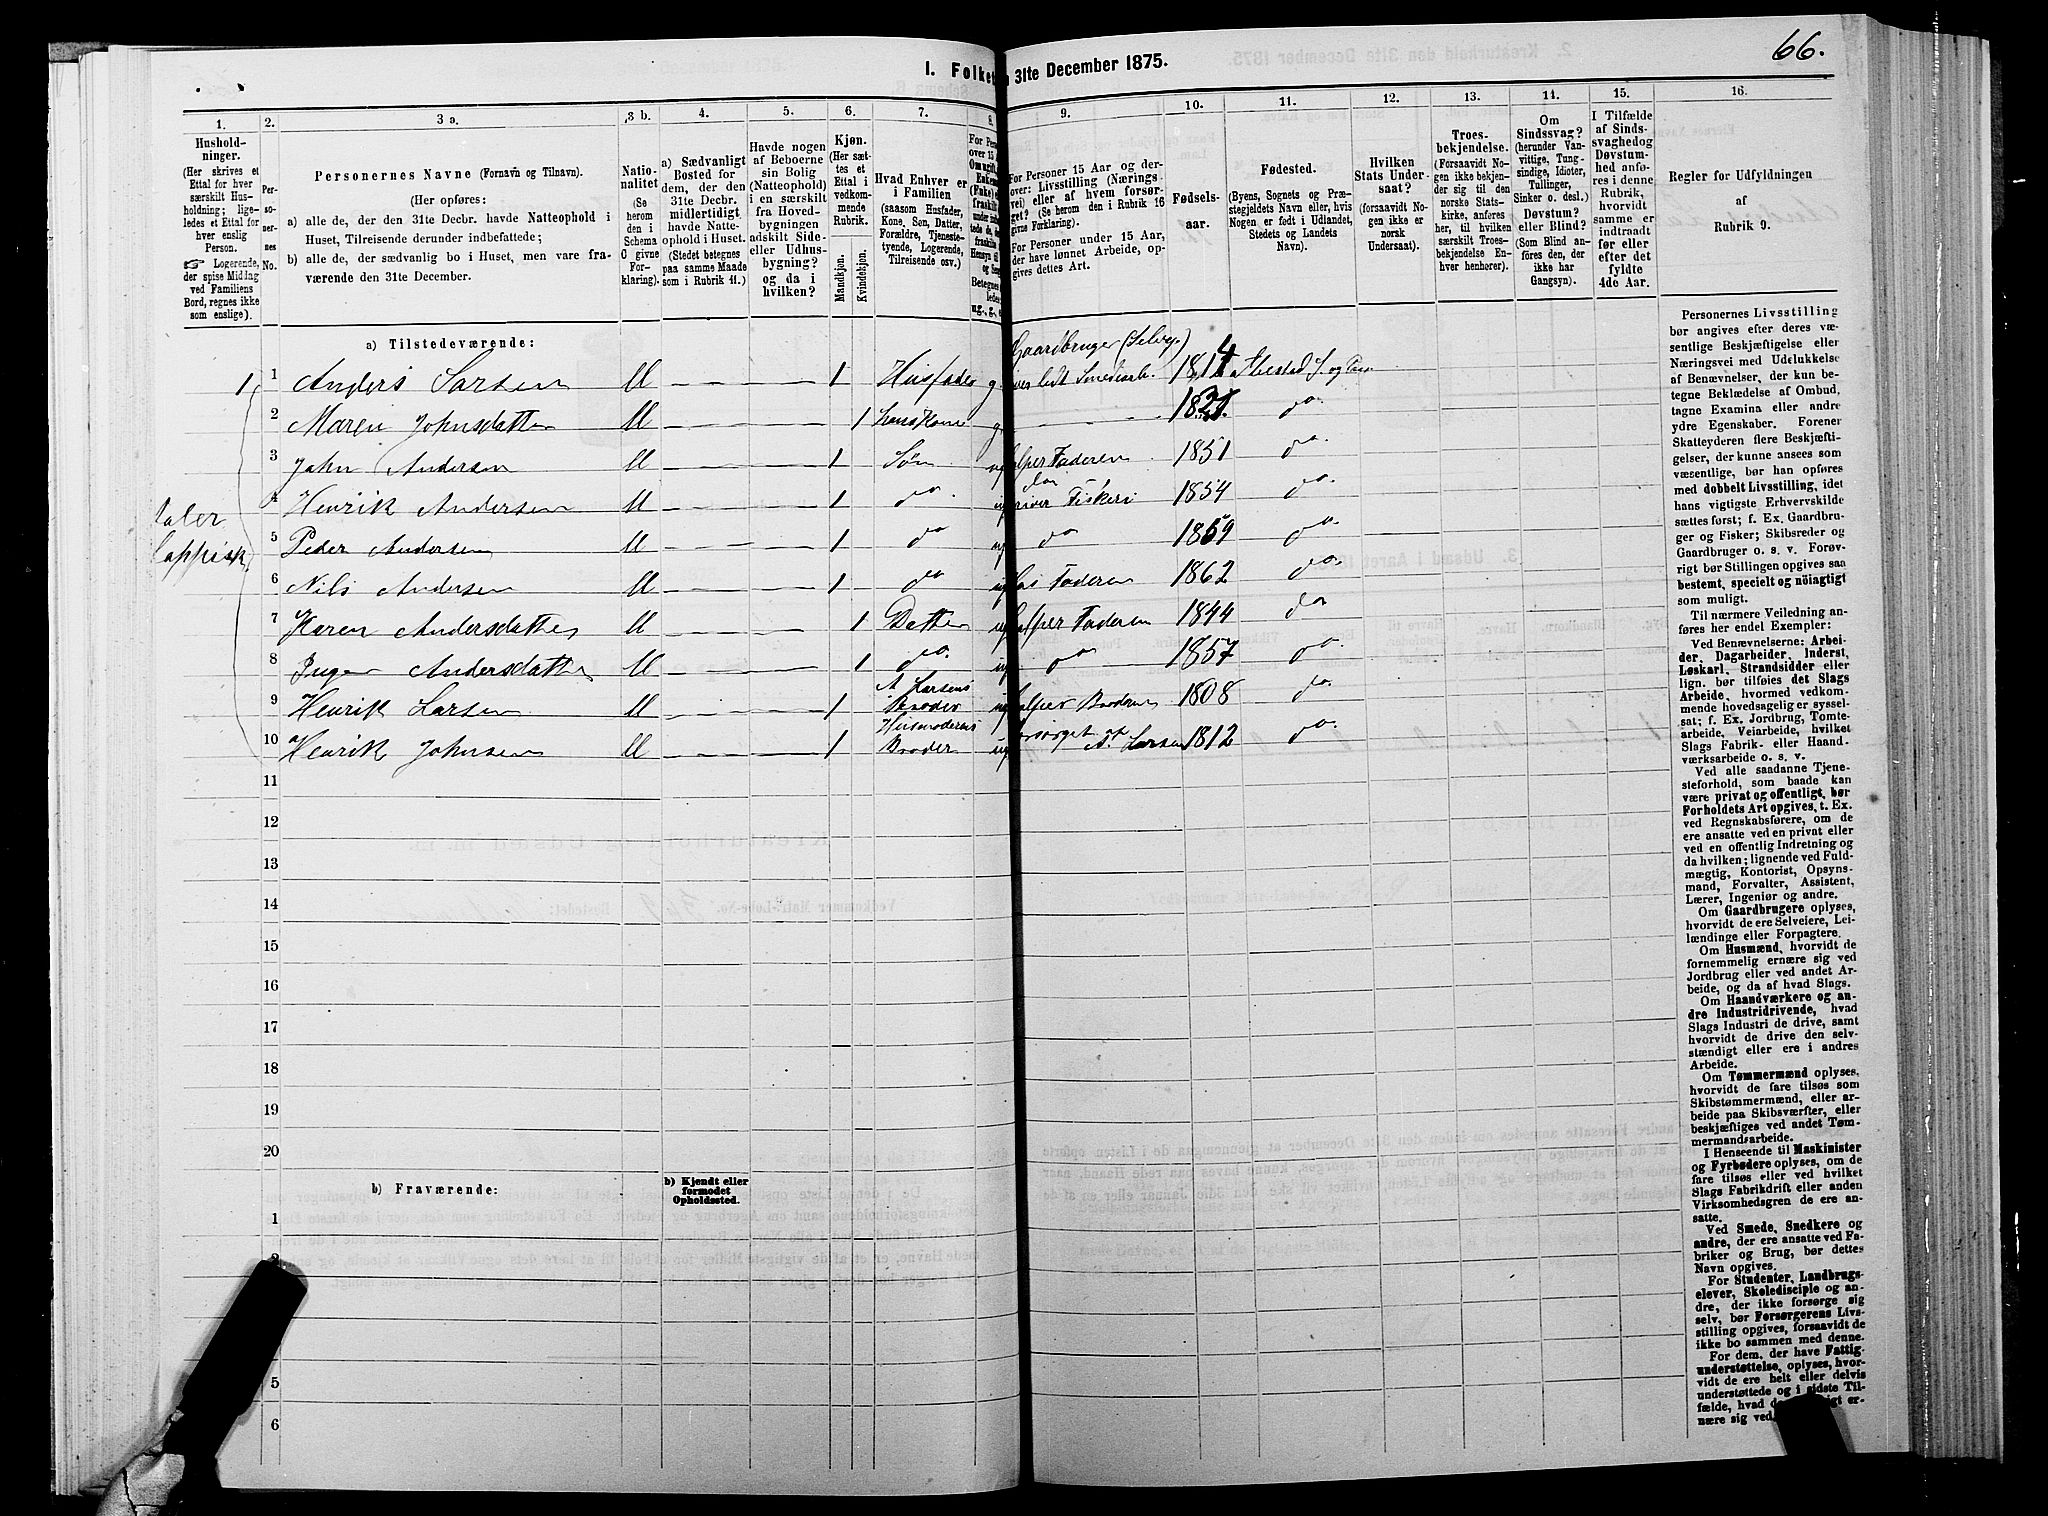 66.
I. Folket
31te December 1875.
1. 2. 3 a. 3 b. 4. 5. 6. 7. 8. 9. 10. 11. 12. 13. 14. 15. 16.
Husholdninger.
(Her skrives et
Ettal for hver
særskilt Husholdning;
ligeledes
et Ettal for
hver enslig
Person.
☞ Logerende,
der spise Middag
ved Familiens
Bord, regnes ikke
som enslige).
Personernes No.
Personernes Navne (Fornavn og Tilnavn).
(Her opføres:
a) alle de, der den 31te Decbr. havde Natteophold i
Huset, Tilreisende derunder indbefattede;
b) alle de, der sædvanlig bo i Huset, men vare fraværende
den 31te December.
Nationalitet
(Se
herom
den i
Schema
O givne
Forklaring).
a) Sædvanligt
Bosted for
dem, der den
31te Decbr.
midlertidigt
havde Natteophold
i Huset.
(Stedet betegnes
paa samme Maade
som i Rubrik 11.)
Havde nogen
af Beboerne
sin Bolig
(Natteophold)
i en særskilt
fra Hovedbygningen
adskilt Side-
eller Udhusbygning?
og da i
hvilken?
Kjøn.
(Her sættes
et
Ettal i
vedkommende
Rubrik.
Mandkjøn.
Kvindekjøn.
Hvad Enhver er
i Familien
(saasom Husfader,
Kone, Søn, Datter,
Forældre, Tjenestetyende,
Logerende,
Tilreisende osv.)
For Personer 15 Aar og derover:
Livsstilling (Næringsvei)
eller af hvem forsørget?
(Se herom den i Rubrik 16
givne Forklaring).
For Personer under 15 Aar,
der have lønnet Arbeide, opgives
dettes Art.
Fødselsaar.
Fødested.
(Byens, Sognets og Præstegjeldets
Navn eller, hvis
Nogen er født i Udlandet,
Stedets og Landets
Navn).
Hvilken
Stats Undersaat?
(forsaavidt Nogen
ikke er
norsk
Undersaat).
Troesbekjendelse.
(Forsaavidt Nogen
ikke bekjender
sig til den
norske Statskirke,
anføres
her, til hvilken
særskilt Troesbekjendelse
Enhver
henhører).
Om
Sindssvag?
(herunder Vanvittige,
Tungsindige,
Idioter,
Tullinger,
Sinker o. desl.)
Døvstum?
eller Blind?
(Som Blind anføres
den, der
ikke har
Gangsyn).
I Tilfælde
af Sindssvaghed
og
Døvstumhed
anføres
i denne
Rubrik,
hvorvidt
samme er
indtraadt
før eller
efter det
fyldte
4de Aar.
Regler for Udfyldningen
af
Rubrik 9.
a) Tilstedeværende:
Gaardbruger (Selvej)
1 1 Anders Larsen M 1 Husfader g 1814
2 Maren Johnsdatter M 1 hans Kone g 1821 do.
3 John Andersen M 1 Søn ug hjelper Faderen 1851 do.
4 Henrik Andersen M 1 do. ug driver Fiskeri 1854 do.
5 Peder Andersen M 1 do ug do 1859 do.
6 Nils Andersen M 1 do ug Hos Faderen 1862 do.
7 Karen Andersdatter M 1 Datter ug hjelper Faderen 1844 do
8 Inger Andersdatter M 1 do. ug do 1857 do.
9 Henrik Larsen M 1 A Larsens Broder ug hjelper Broderen 1808 do.
10 Henrik Johnsen M 1 Husmoderens Broder ug forsørget af A. Larsen 1812 do.
taler
lappisk
11
12
13
14
15
16
17
18
19
20
b) Fraværende:
b) Kjendt eller
formodet
Opholdssted.
1
5
6
Personernes Livsstilling
bør angives efter deres væsentlige
Beskjæftigelse eller
Næringsvei med Udelukkelse
af Benævnelser, der kun betegne
Beklædelse af Ombud,
tagne Examina eller andre
ydre Egenskaber. Forener
Skatteyderen flere Beskjæftigelser,
der kunne ansees som
væsentlige, bør han opføres
med dobbelt Livsstilling, idet
hans vigtigste Erhvervskilde
sættes først; f. Ex. Gaardbruger
og Fisker; Skibsreder og
Gaardbruger o. s. v. Forøvrigt
bør Stillingen opgives saa
bestemt, specielt og nöiagtigt
som muligt.
Til nærmere Veiledning anføres
her endel Exempler:
Ved Benævnelserne: Arbeider,
Dagarbeider, Inderst,
Løskarl, Strandsidder eller
lign. bør tilføies det Slags
Arbeide, hvormed vedkommende
hovedsagelig er sysselsat;
f. Ex. Jordbrug, Tomtearbeide,
Veiarbeide, hvilket
Slags Fabrik- eller Haandværksarbeide
o. s. v.
Ved alle saadanne Tjenesteforhold,
som baade kan
være privat og offentligt, bør
Forholdets Art opgives, t. Ex.
ved Regnskabsførere, om de
ere ansatte ved en privat eller
ved en offentlig Indretning og
da hvilken; lignende ved Fuldmægtig,
Kontorist, Opsynsmand,
Forvalter, Assistent,
Lærer, Ingeniør og andre.
Om Gaardbrugere oplyses,
hvorvidt de ere Selveiere, Leilændinge
eller Forpagtere.
Om Husmænd, hvorvidt de
fornemmelig ernære sig ved
Jordbrug eller ved andet Arbeide,
og da af hvad Slags.
Om Haandværkere og andre
Industridrivende, hvad
Slags Industri de drive, samt
hvorvidt de drive den selvstændigt
eller ere i andres
Arbeide.
Om Tømmermænd oplyses,
hvorvidt de fare tilsøs som
Skibstømmermænd, eller arbeide
paa Skibsværfter, eller
beskjæftiges ved andet Tømmermandsarbeide.
I Henseende til Maskinister
og Fyrbødere oplyses, om de
fare tilsøs eller ved hvilket
Slags Fabrikdrift eller anden
Virksomhedsgren de ere ansatte.
Ved Smede, Snedkere og
andre, der ere ansatte ved Fabriker
og Brug, bør dettes
Navn opgives.
For Studenter, Landbrugselever,
Skoledisciple og andre,
der ikke forsørge sig
selv, bør Forsørgerens Livsstilling
opgives, forsaavidt de
ikke bo sammen med denne.
For dem, der have Fattigunderstøttelse,
oplyses, hvorvidt
de ere helt eller delvis
understøttede og i sidste Tilfælde,